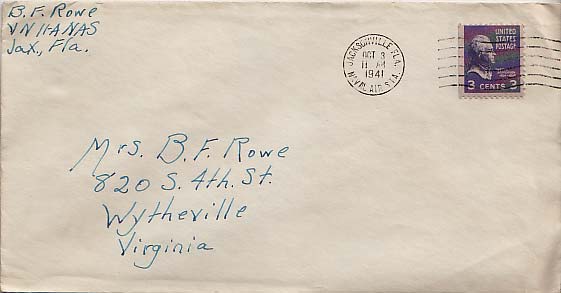 B. F. Rowe
VN11A NAS
Jax., Fla.
JACKSONVILLE FLA.
OCT 3
11 AM
1941
NAVAL AIR STA.
UNITED
STATES
POSTAGE
3 CENTS 3
Mrs. B. F. Rowe
820 S. 4th. St.
Wytheville
Virginia